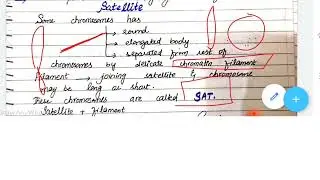 Satellite
Some chromosomes has
→ round
→ elongated body
→ separated from rest of
chromosomes by delicate chromatin filament
Filament → joining satellite & chromosome
may be long or short.
These chromosomes are called SAT.
Satellite + filament